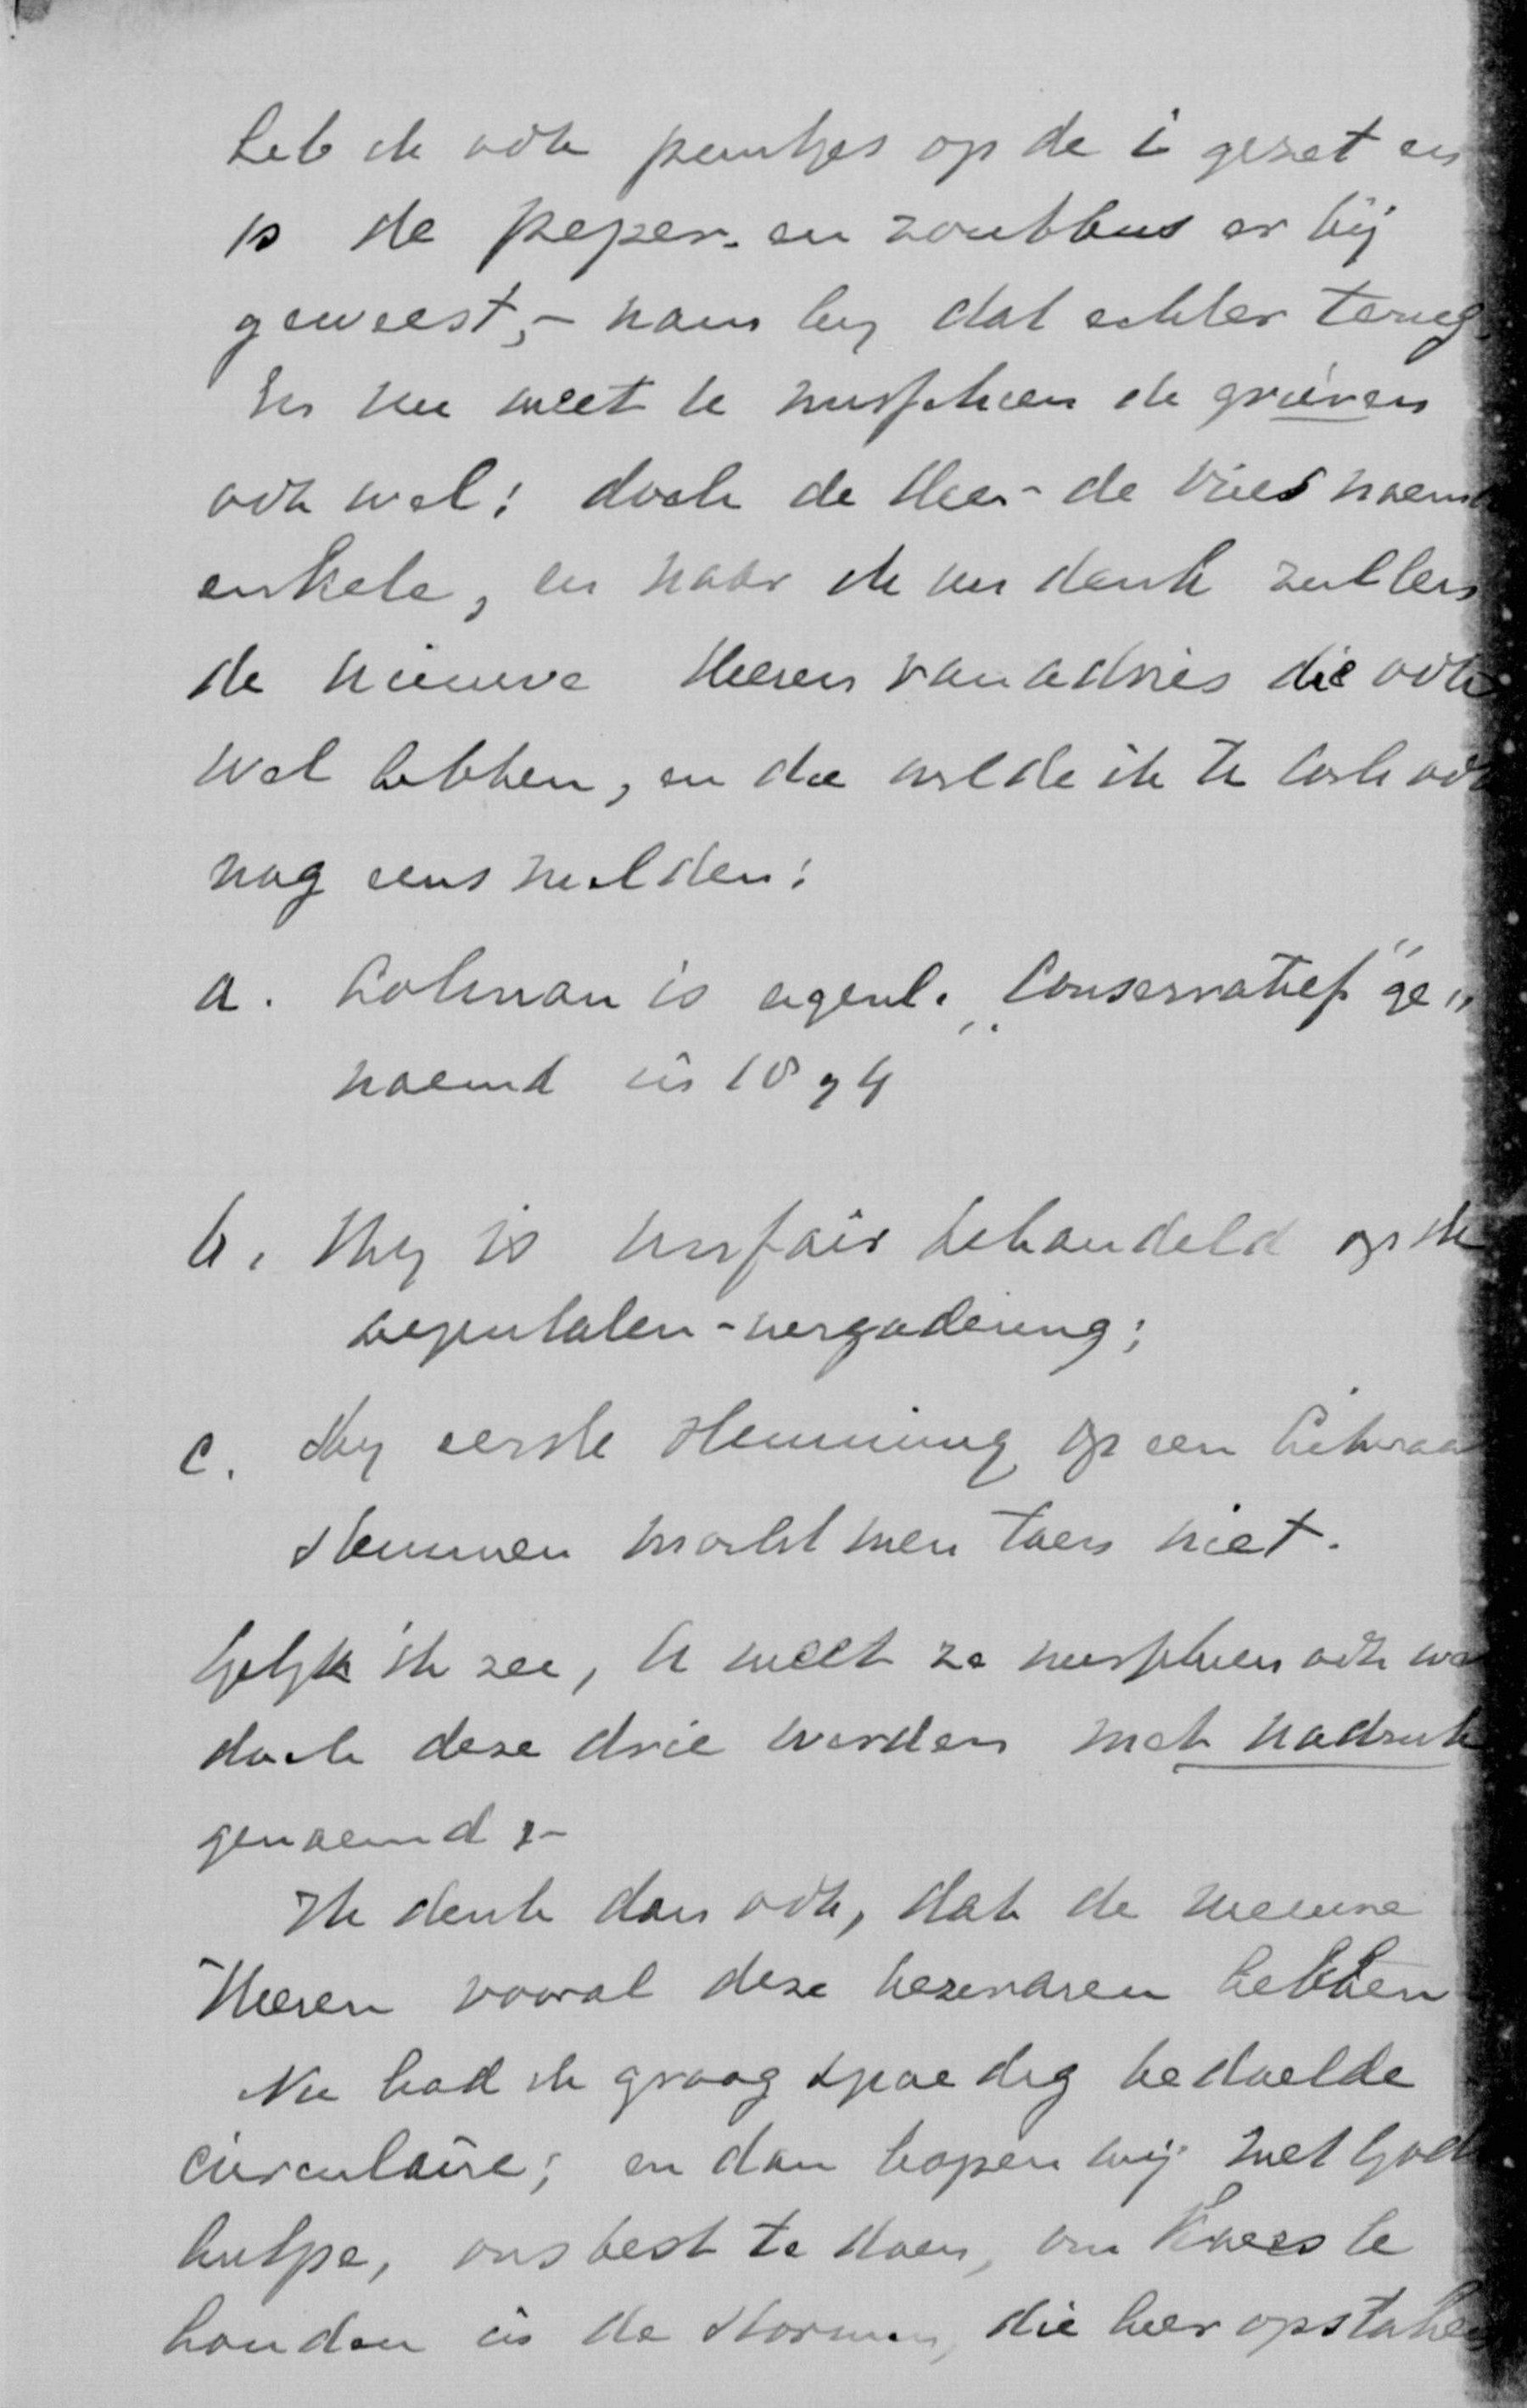 heb ik ook puntjes op de i gezet en
is de peper- en zoutbus er bij
geweest,- nam hij dat echter terug.
En nu weet U misschien de grieven
ook wel: doch de Heer de Vries noemd
enkele, en naar ik nu denk zullen
de nieuwe Heeren van advies die ook
wel hebben, en die wilde ik U toch ook
nog eens melden:
a. Lohman is eigenl. „Conservatief" ge„
noemd in 1894
b. Hij is unfair behandeld op de
deputaten-vergadering;
c. Hij eerste stemming op een
stemmen mocht men toen niet.
Gelijk ik zee, U weet ze misschien ook wel
doch deze drie werden met nadruk
genoemd.-
Ik denk dan ook, dat de nieuwe
Heeren vooral deze bezwaren hebben
Nu had ik graag spoedig bedoelde
circulaire; en dan hopen wij met Gods
hulpe, ons best te doen, om Koers te
houden in de stormen, die hier opstaken